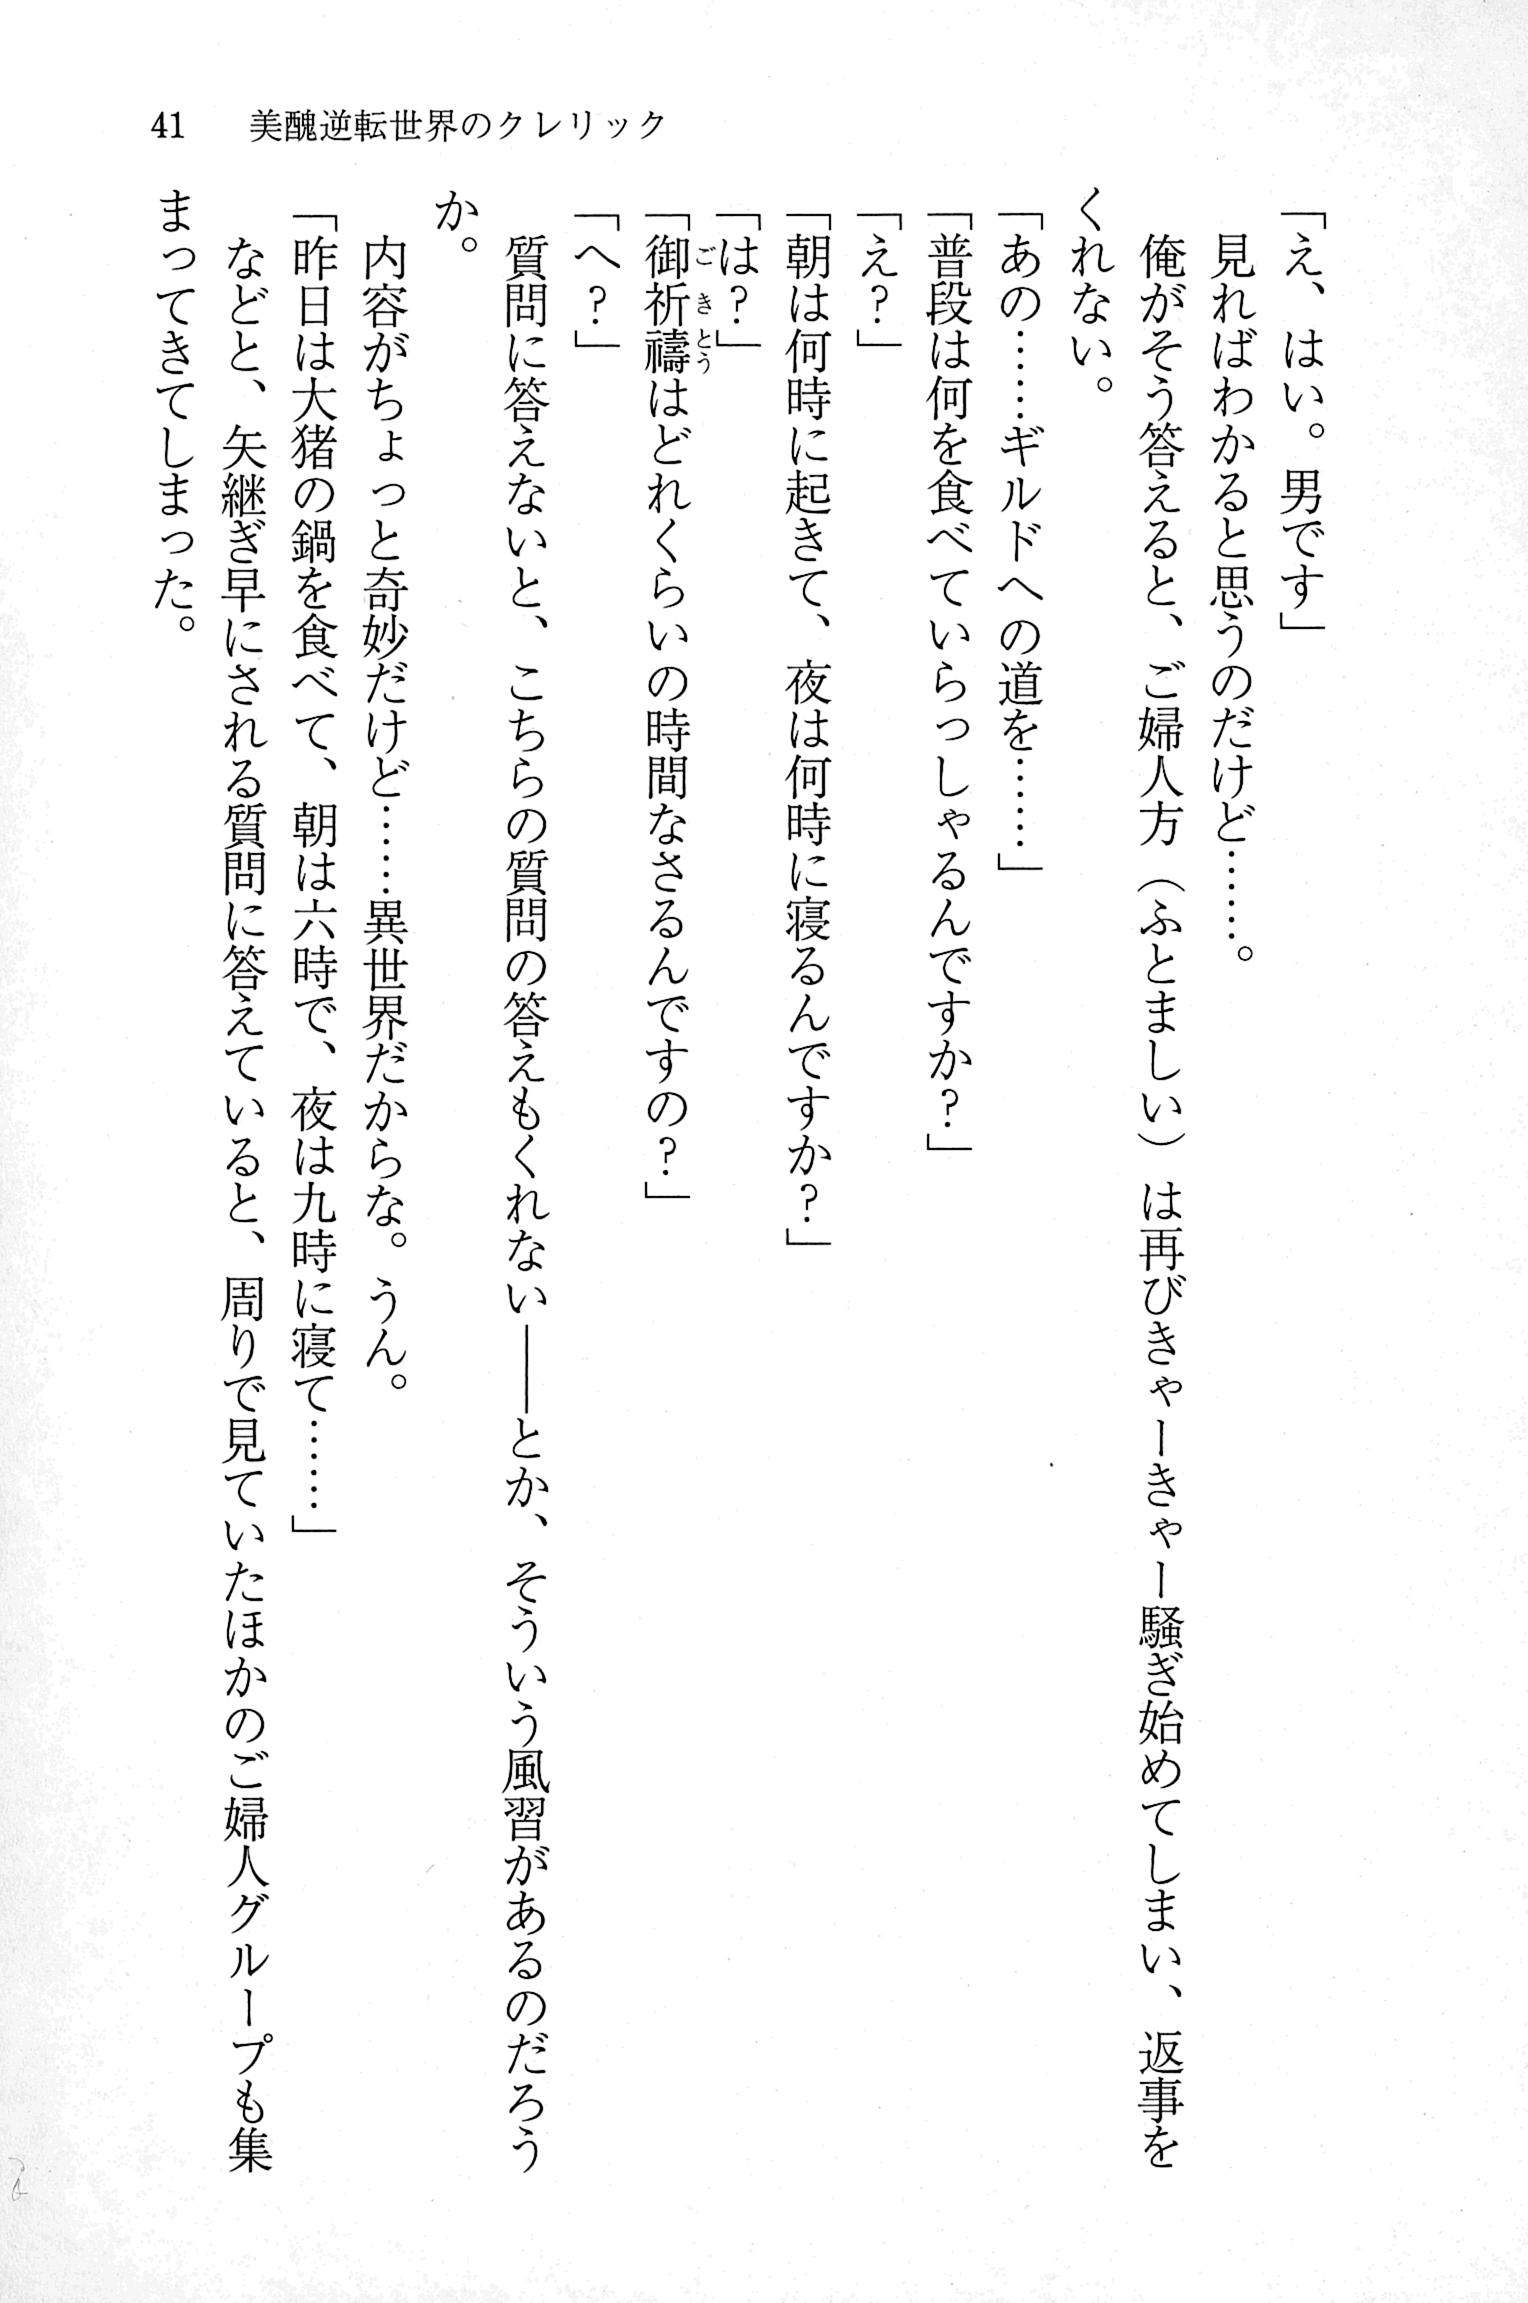 41 美醜逆転世界のクレリック
「え、はい。男です」
見ればわかると思うのだけど……。
俺がそう答えると、ご婦人方（ふとましい）は再びきゃーきゃー騒ぎ始めてしまい、返事を
くれない。
「あの……ギルドへの道を……」
「普段は何を食べていらっしゃるんですか？」
「え？」
「朝は何時に起きて、夜は何時に寝るんですか？」
「は？」
「御祈禱はどれくらいの時間なさるんですの？」
「へ？」
質問に答えないと、こちらの質問の答えもくれない――とか、そういう風習があるのだろう
か。
内容がちょっと奇妙だけど……異世界だからな。うん。
「昨日は大猪の鍋を食べて、朝は六時で、夜は九時に寝て……」
などと、矢継ぎ早にされる質問に答えていると、周りで見ていたほかのご婦人グループも集
まってきてしまった。